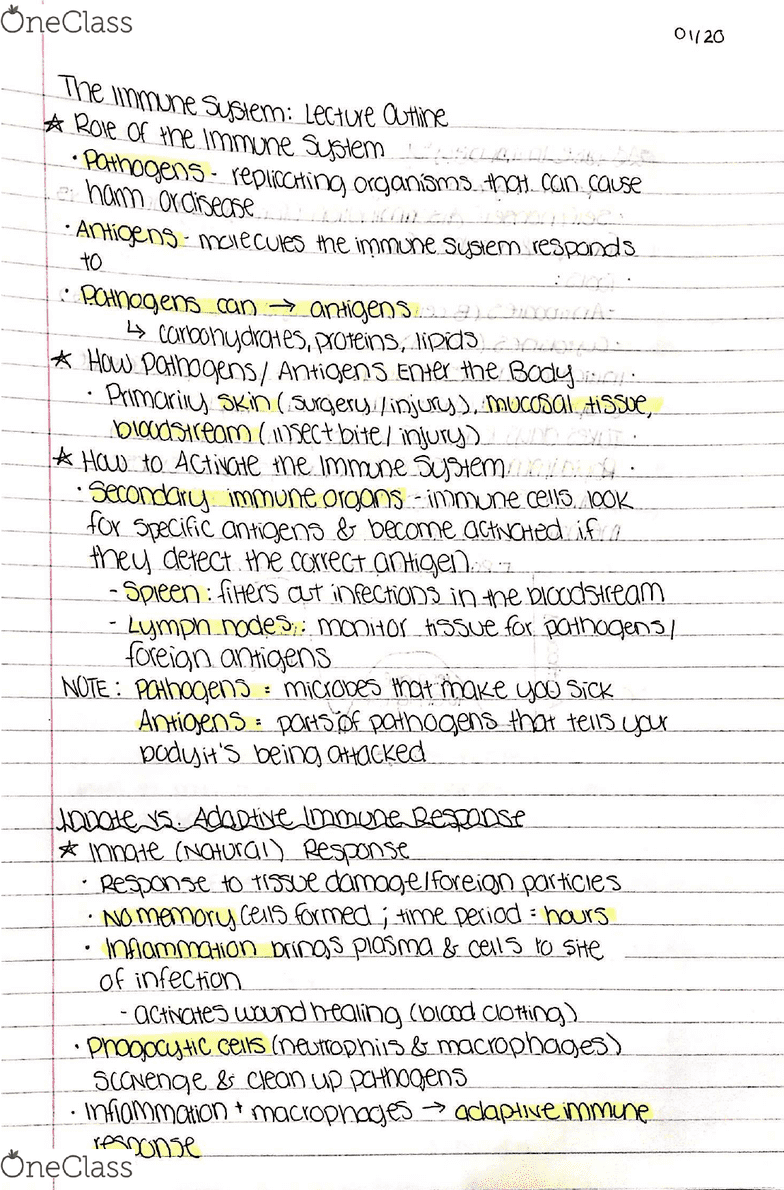 OneClass
01/20
The Immune System: Lecture Outline
☆ Role of the Immune System
· Pathogens - replicating organisms that can cause
harm or disease
· Antigens - molecules the immune system responds
to
· Pathogens can → antigens
↳ carbohydrates, proteins, lipids
☆ How Pathogens/Antigens Enter the Body
· Primarily skin (surgery/injury), mucosal tissue,
bloodstream (insect bite/injury)
☆ How to Activate the Immune System
· Secondary immune organs - immune cells look
for specific antigens & become activated if
they detect the correct antigen
- Spleen: filters out infections in the bloodstream
- Lymph nodes: monitor tissue for pathogens/
foreign antigens
NOTE: Pathogens = microbes that make you sick
Antigens = parts of pathogens that tells your
body it's being attacked
Innate vs. Adaptive Immune Response
☆ Innate (Natural) Response
· Response to tissue damage/foreign particles
· No memory cells formed; time period = hours
· Inflammation brings plasma & cells to site
of infection
- activates wound healing (blood clotting)
· Phagocytic cells (neutrophils & macrophages)
scavenge & clean up pathogens
· Inflammation + macrophages → adaptive immune
response
OneClass